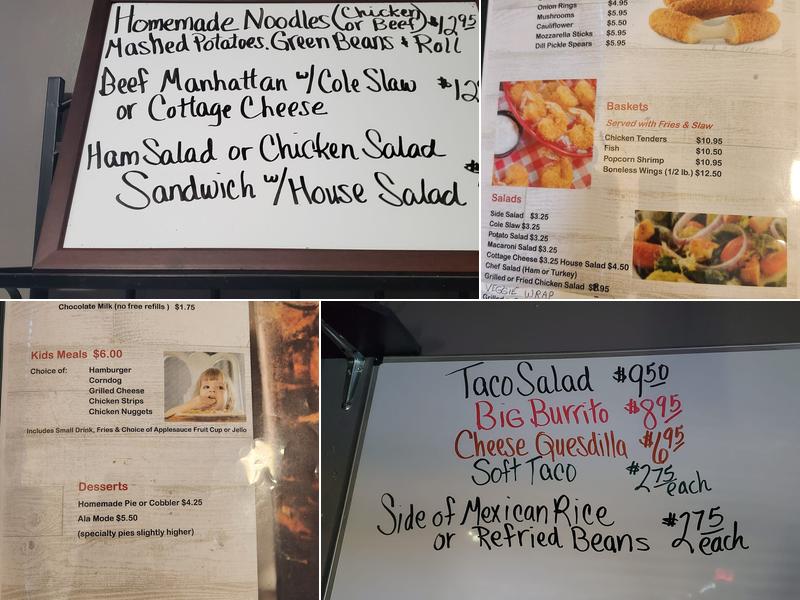 Homemade Noodles (Chicken or Beef) $12.95
Mashed Potatoes. Green Beans & Roll
Beef Manhattan w/ Cole Slaw $12
or Cottage Cheese
Ham Salad or Chicken Salad
Sandwich w/ House Salad
Onion Rings $4.95
Mushrooms $5.95
Cauliflower $5.50
Mozzarella Sticks $5.95
Dill Pickle Spears $5.95
Baskets
Served with Fries & Slaw
Chicken Tenders $10.95
Fish $10.50
Popcorn Shrimp $10.95
Boneless Wings (1/2 lb.) $12.50
Salads
Side Salad $3.25
Cole Slaw $3.25
Potato Salad $3.25
Macaroni Salad $3.25
Cottage Cheese $3.25 House Salad $4.50
Chef Salad (Ham or Turkey)
Grilled or Fried Chicken Salad $8.95
VEGGIE WRAP
Chocolate Milk (no free refills ) $1.75
Kids Meals $6.00
Choice of: Hamburger
Corndog
Grilled Cheese
Chicken Strips
Chicken Nuggets
Includes Small Drink, Fries & Choice of Applesauce Fruit Cup or Jello
Desserts
Homemade Pie or Cobbler $4.25
Ala Mode $5.50
(specialty pies slightly higher)
Taco Salad $9.50
Big Burrito $8.95
Cheese Quesdilla $6.95
Soft Taco $2.75 each
Side of Mexican Rice
or Refried Beans $2.75 each